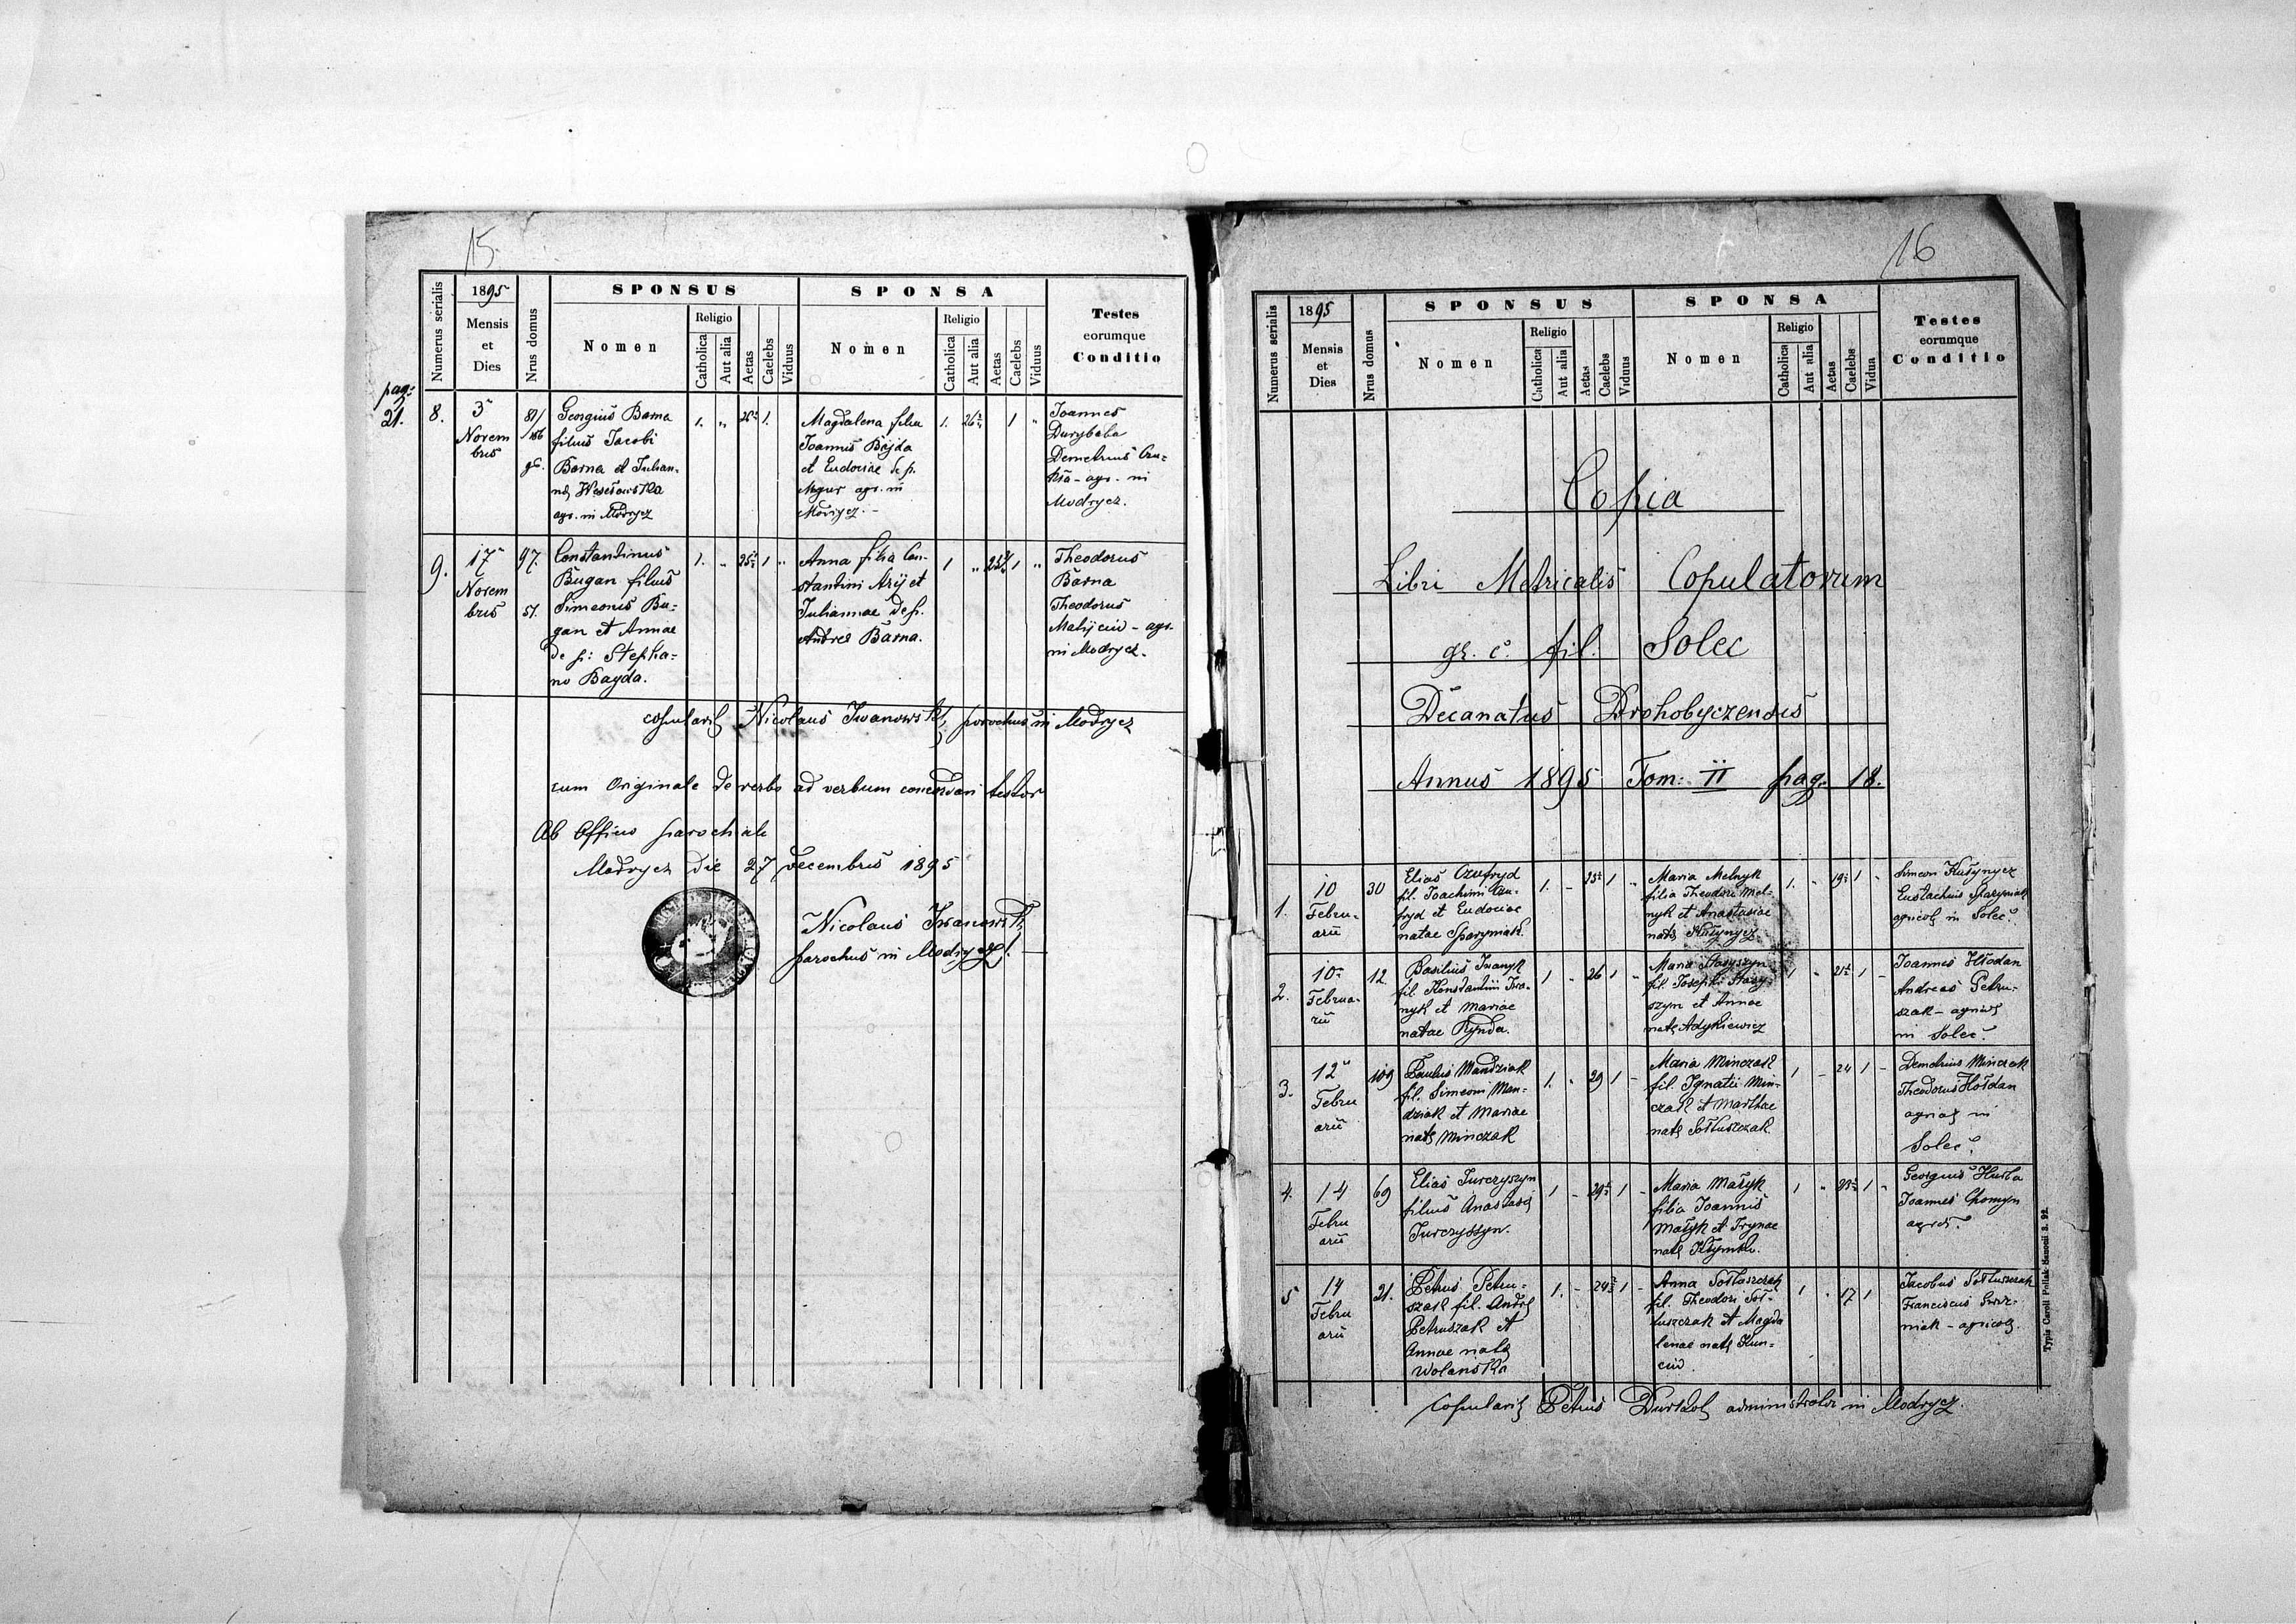 15
Numerus serialis
1895
Mensis
et
Dies
Nrus domus
SPONSUS
Nomen
Religio
Catholica
Aut alia
Aetas
Caelebs
Viduus
SPONSA
Nomen
Religio
Catholica
Aut alia
Aetas
Caelebs
Viduus
Testes
eorumque
Conditio
pag:
21.
8.
3
Novem
bris
Georgius Barna
filius Jacobi
Barna et Julian-
agr. in Modrycz
1.
"
1.
Magdalena filia
Joannis Bajda
et Eudociae de p.
agr. in
1.
1
"
Joannes
Durybaba
Demetrius
agr. in
Modrycz.
9.
17
Novem
bris
97.
51.
Constantinus
Bugan filius
Simeonis Bu-
gan et Annae
de p: Stepha-
no Bayda.
1.
"
1
"
Anna filia Con-
stantini et
Juliannae de p.
Andrea Barna.
1
"
1
"
Theodorus
Barna
Theodorus
agr.
in Modrycz.
copulavit Nicolaus Iwanowski, parochus in Modrycz
cum Originale de verbo ad verbum concordari testor
Ab Officio parochiali
Modrycz die 27 Decembris 1895
Nicolaus Iwanowski,
parochus in Modrycz
16
Numerus serialis
1895
Mensis
et
Dies
Nrus domus
SPONSUS
Nomen
Religio
Catholica
Aut alia
Aetas
Caelebs
Viduus
SPONSA
Nomen
Religio
Catholica
Aut alia
Aetas
Caelebs
Vidua
Testes
eorumque
Conditio
Copia
Libri Metricalis Copulatorum
gr. c. fil. Solec
Decanatus Drohobyczensis
Annus 1895 Tom: II pag. 18.
1.
10
Febru-
arii
30
Elias Czufryd
fil. Joachimi Czu-
fryd et Eudociae
natae Sparyniak.
1.
-
1
"
Maria Melnyk
filia Theodori Mel-
nyk et Anastasiae
1.
"
1
"
Simeon
Eustachius
agricolae in Solec.
2.
10
Februa-
rii
12
Basilius Iwanyk
fil. Konstantini Iwa-
nyk et Mariae
natae Rynda.
1
-
26
1
"
Maria Stasyszyn
fil. Josephi Stasy-
szyn et Annae
1
"
1
-
Joannes Hłodan
Andreas Petru-
szak - agricolae
in Solec.
3.
12
Febru
arii
109
Paulus Mandziak
fil. Simeoni Man-
dziak et Mariae
natae Minczak
1.
"
29
1
-
Maria Minczak
fil. Ignatii Min-
czak et Marthae
natae Sołtuszczak.
1
-
24
1
-
Demetrius Minczak
Theodorus Hołdan
in
Solec.
4.
14
Febru
arii
69
Elias Jurczyszyn
filius Anastasiae
Jurczyszyn.
1
-
1
-
Maria Małyk
filia Joannis
Małyk et Irynae
1
"
1
"
Georgius
Joannes Chomyn
5
14
Febru
arii
21.
Petrus Petru-
szak fil. Andreae
Petruszak et
Annae natae
Wolanska
1.
-
1
-
Anna Sołtuszczak
fil. Theodori Soł-
tuszczak et Magda
lenae natae Kun-
ciw.
1
"
17
1
Jacobus Sołtuszczak
Franciscus
agricolae.
copulavit Petrus administrator in Modrycz.
Typis Caroli Pollak Sanocii 3. 92.